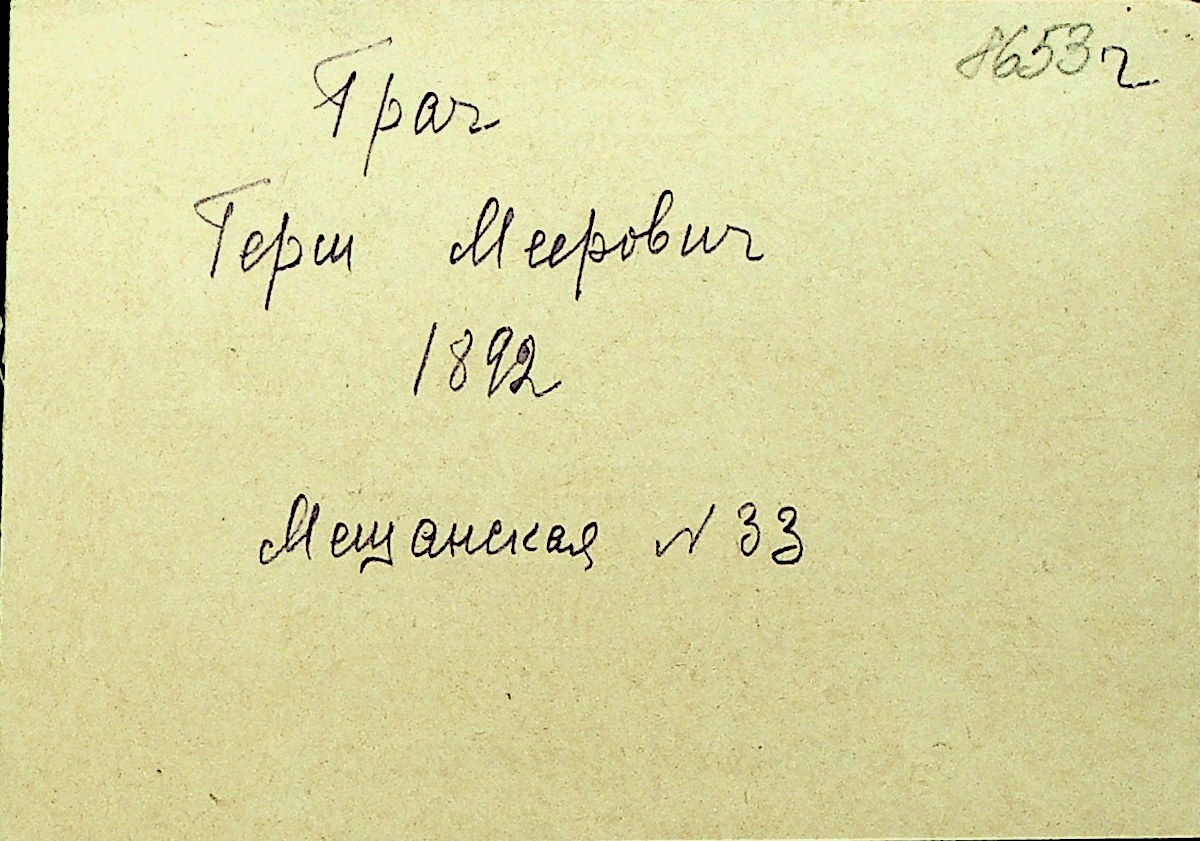 8653ч
Грач
Герш Меерович
1892
Мещанская № 33